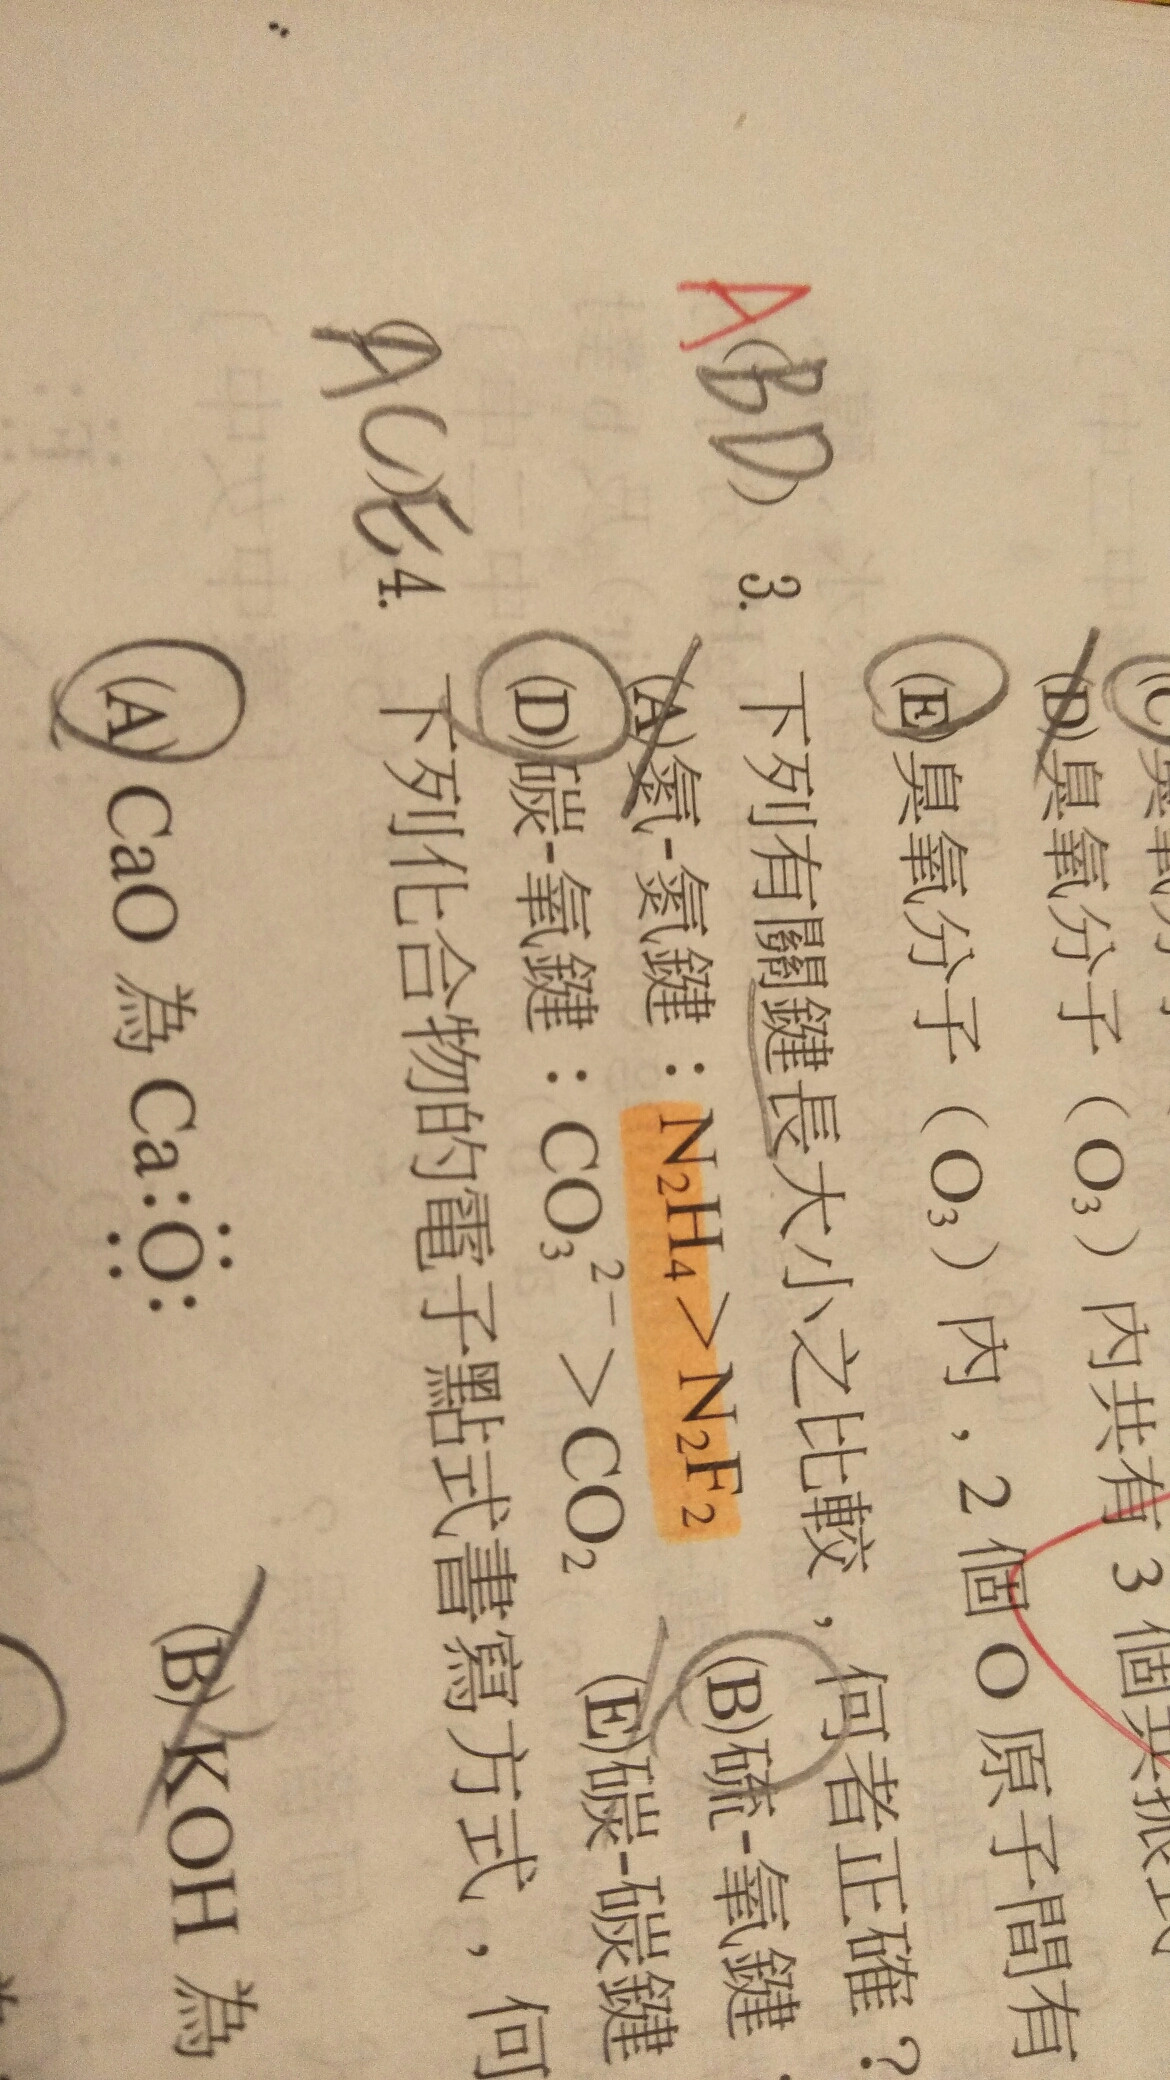 (D)臭氧分子（O₃）內共有 3 個共振式
(E)臭氧分子（O₃）內，2 個 O 原子間有
A(BD) 3. 下列有關鍵長大小之比較，何者正確？
(A)氮-氮鍵：N₂H₄＞N₂F₂ (B)硫-氧鍵
(D)碳-氧鍵：CO₃²⁻＞CO₂ (E)碳-碳鍵
(ACE)4. 下列化合物的電子點式書寫方式，何
(A) CaO 為 Ca:O: (B) KOH 為